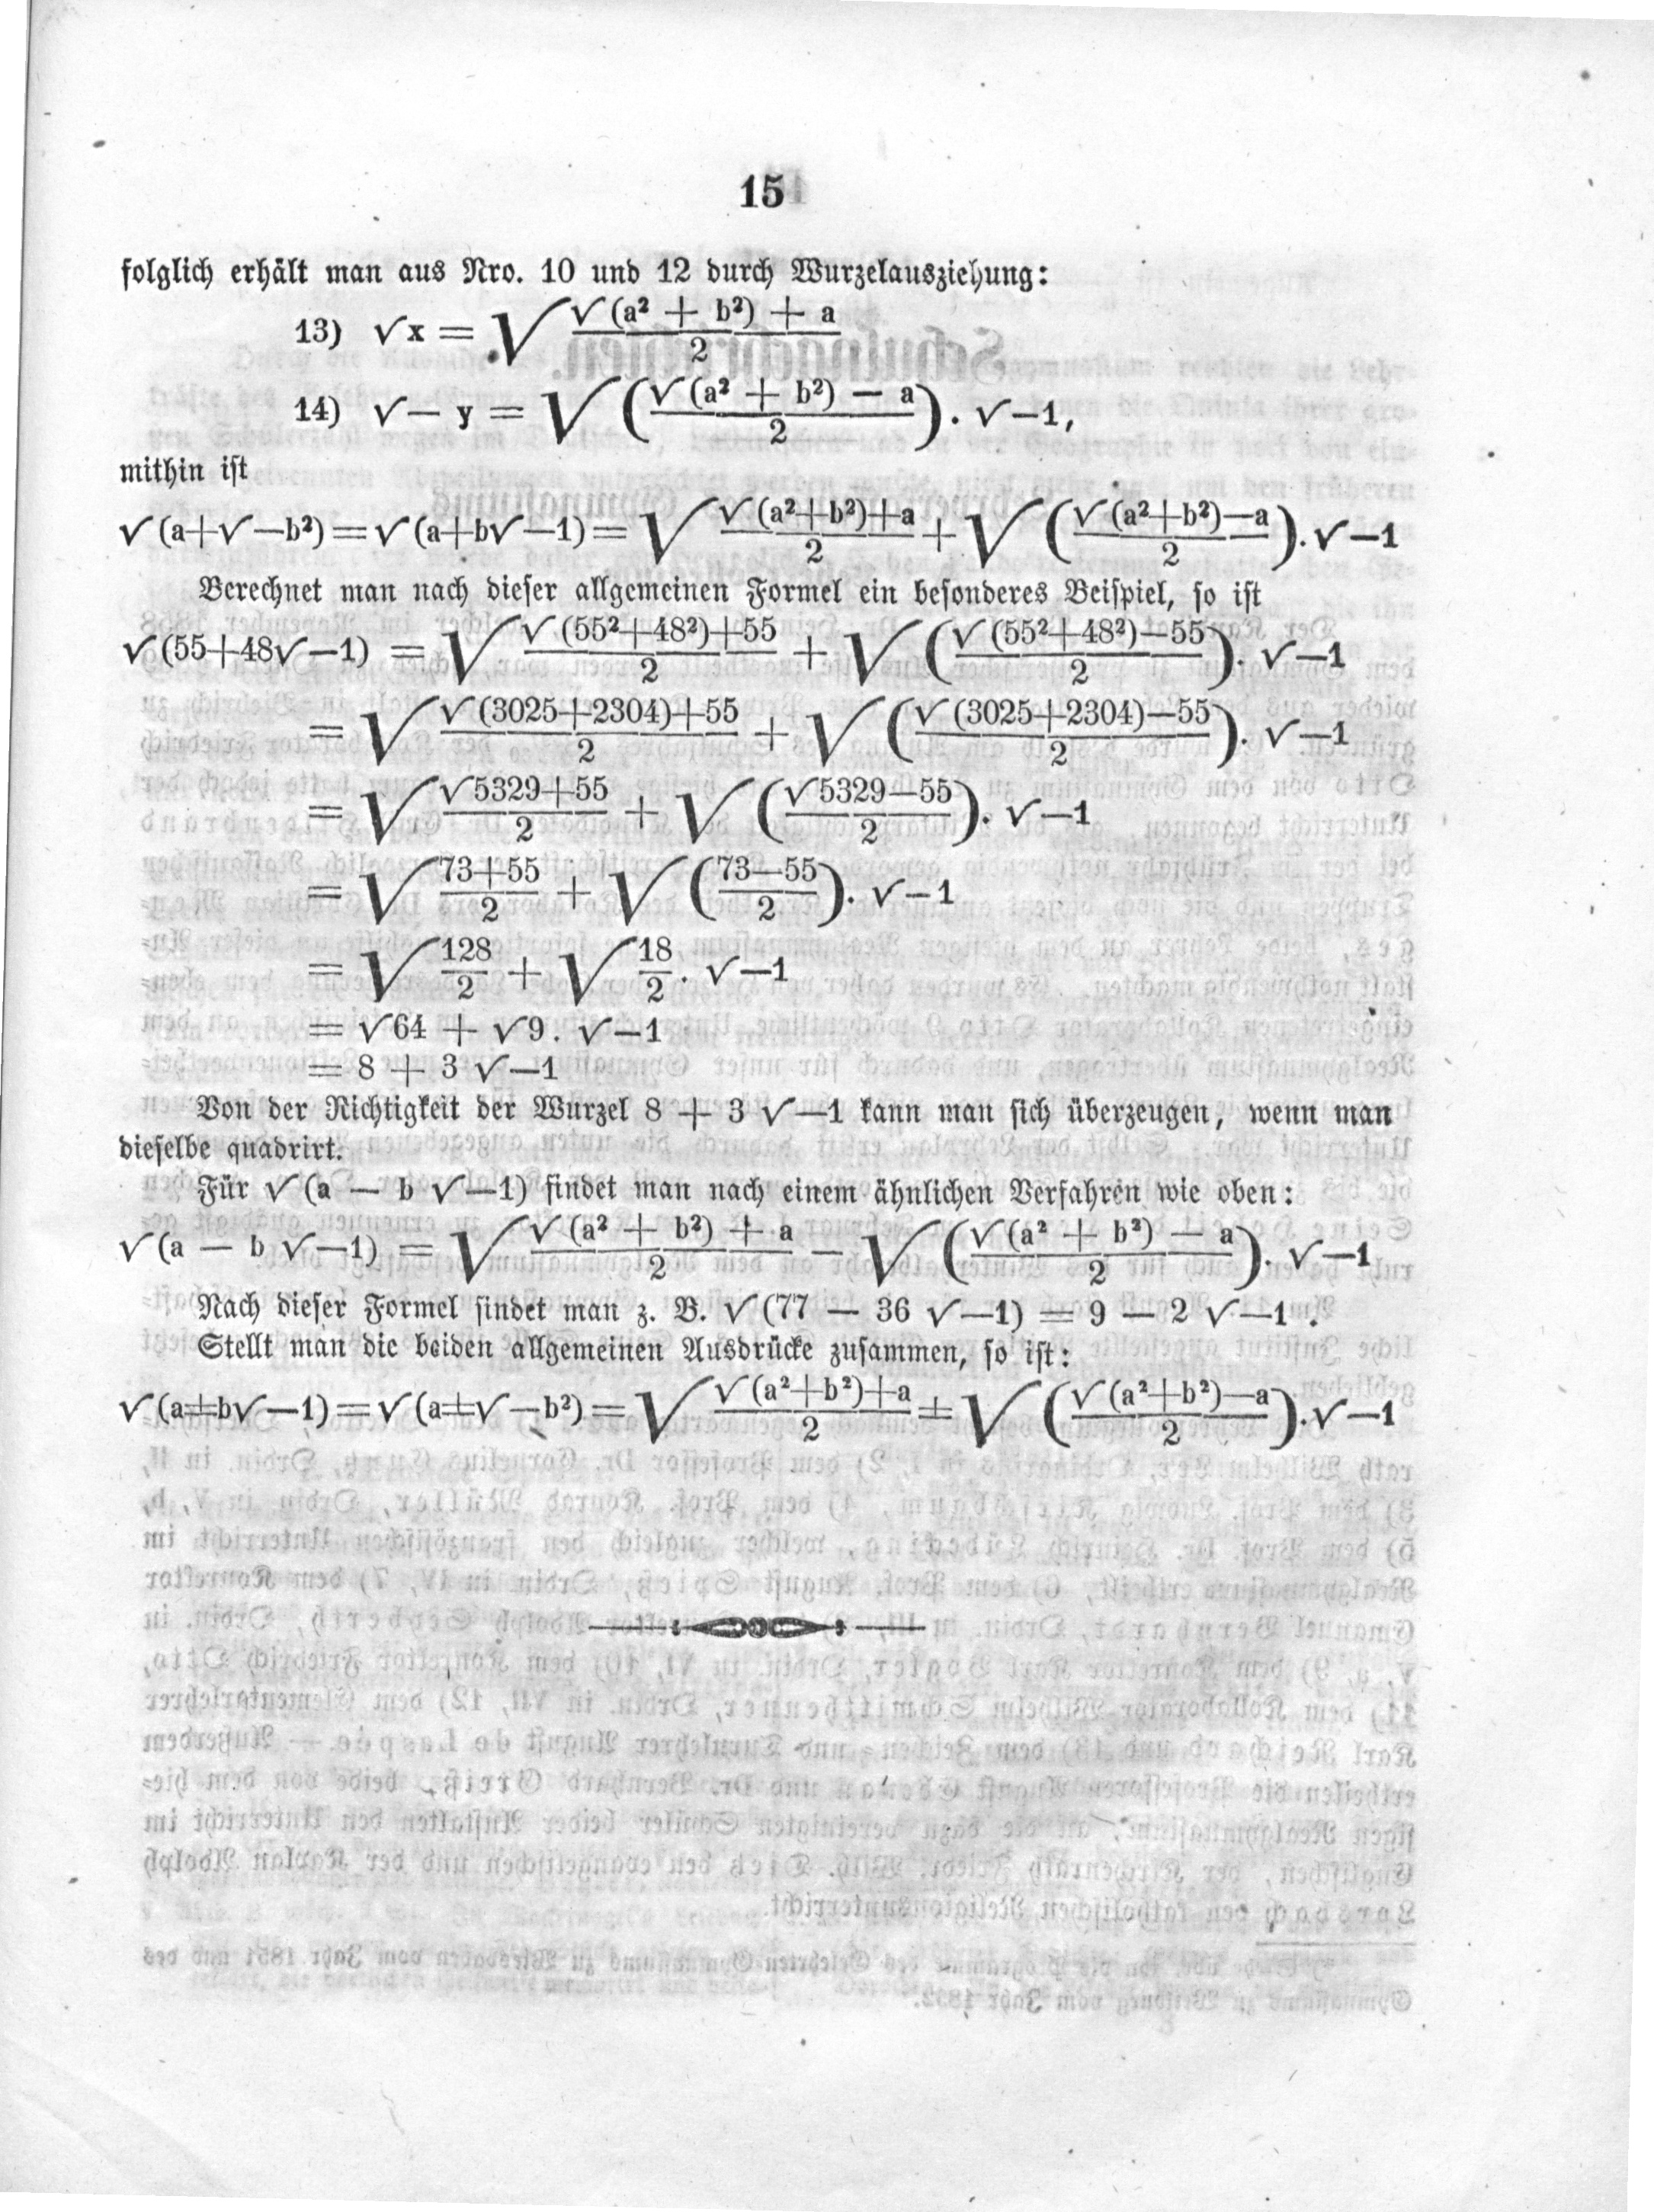 15
folglich erhält man aus Nro. 10 und 12 durch Wurzelausziehung:
13) √x = √ (√(a² + b²) + a)/2
14) √— y = √ ((√(a² + b²) — a)/2) . √—1,
mithin ist
√(a+√—b²)=√(a+b√—1)= √ (√(a²+b²)+a)/2 + √ ((√(a²+b²)—a)/2).√—1
Berechnet man nach dieser allgemeinen Formel ein besonderes Beispiel, so ist
√(55+48√—1) = √ (√(55²+48²)+55)/2 + √ ((√(55²+48²)—55)/2). √—1
= √ (√(3025+2304)+55)/2 + √ ((√(3025+2304)—55)/2). √—1
= √ (√5329+55)/2 + √ ((√5329—55)/2). √—1
= √ (73+55)/2 + √ ((73—55)/2). √—1
= √ 128/2 + √ 18/2 . √—1
= √64 + √9. √—1
= 8 + 3 √—1
Von der Richtigkeit der Wurzel 8 + 3 √—1 kann man sich überzeugen, wenn man
dieselbe quadrirt.
Für √(a — b √—1) findet man nach einem ähnlichen Verfahren wie oben:
√(a — b √—1) = √ (√(a² + b²) + a)/2 — √ ((√(a² + b²) — a)/2). √—1
Nach dieser Formel findet man z. B. √(77 — 36 √—1) = 9 — 2 √—1 .
Stellt man die beiden allgemeinen Ausdrücke zusammen, so ist:
√(a±b√—1)=√(a±√—b²)= √ (√(a²+b²)+a)/2 ± √ ((√(a²+b²)—a)/2).√—1